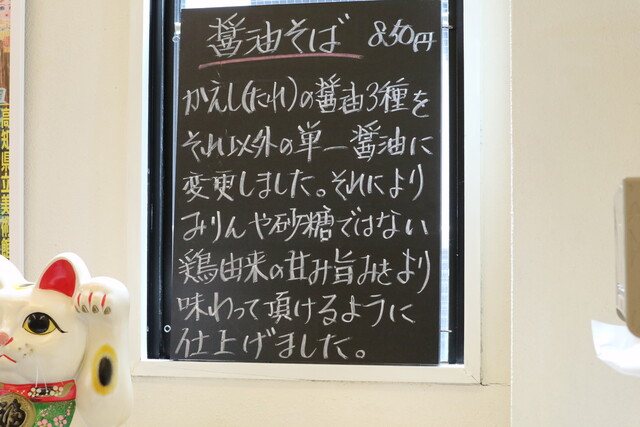 醤油そば 850円
かえし(たれ)の醤油3種を
それ以外の単一醤油に
変更しました。それにより
みりんや砂糖ではない
鶏由来の甘み旨みをより
味わって頂けるように
仕上げました。
高知県立美術館